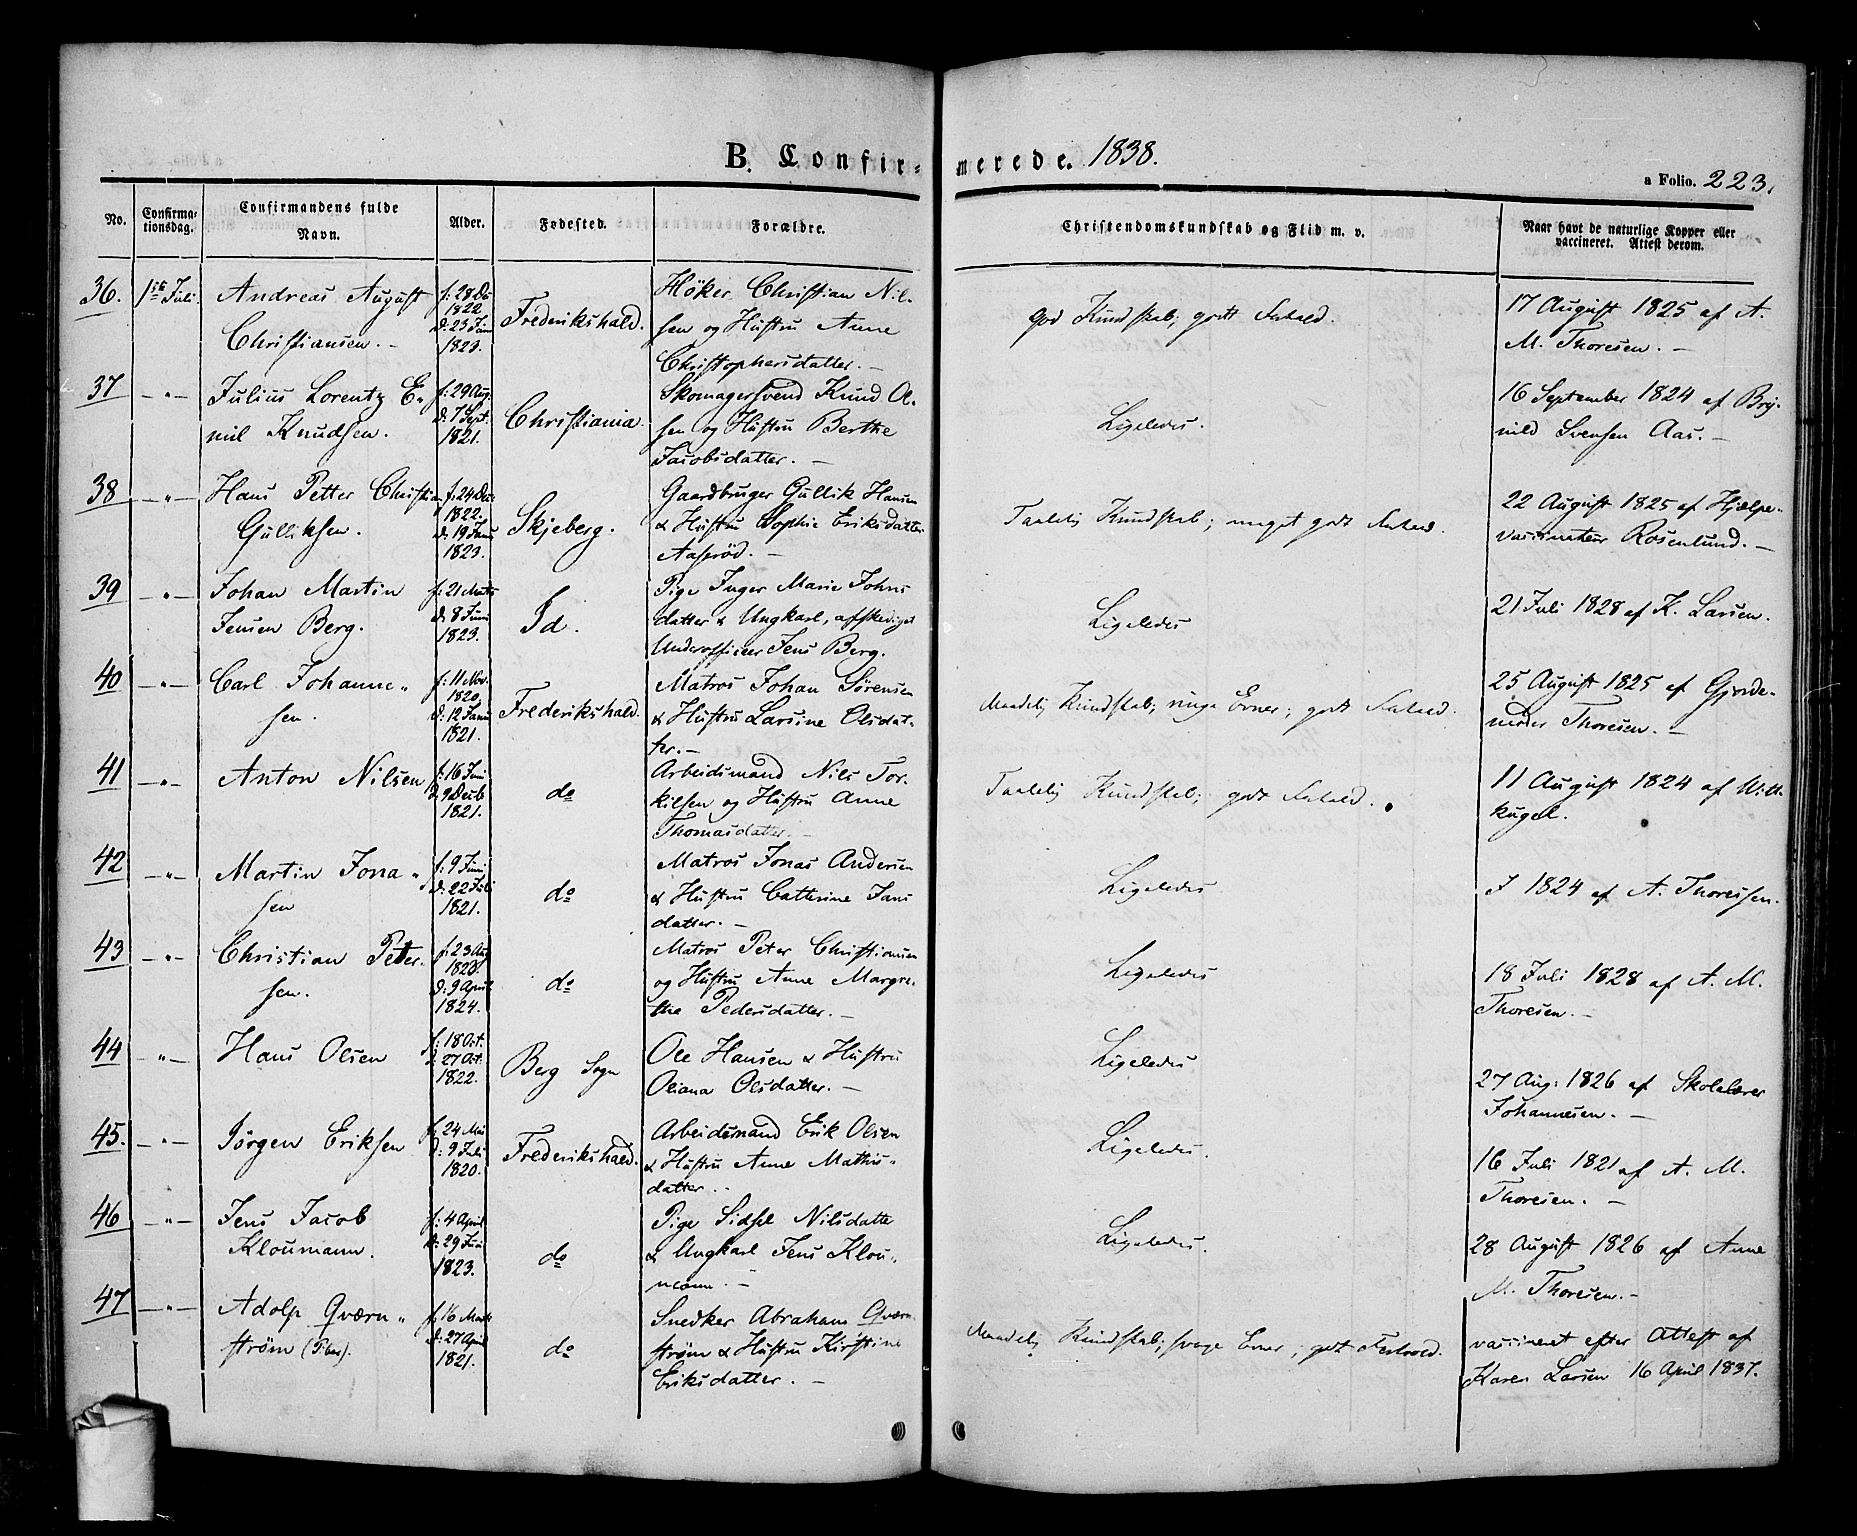 B. Confirmerede. 1838.
a Folio. 223.
No.
Confirmationsdag.
Confirmandens fulde Navn.
Alder.
Fødested.
Forældre.
Christendomskundskab og Flid m. v.
Naar havt de naturlige Kopper eller vaccineret. Attest derom.
36. 1ste Juli. Andreas August f: 28 De Høker Christian Nil-
Christiansen. 1822 d: 23 Juni 1823. Frederikshald. sen og Hustru Anne
Christophersdatter. —
god Kundskab; godt Forhold.
17 August 1825 af A.
M. Thoresen. —
37 —"— Julius Lorentz E" f: 29 Aug. Skomagersvend Knud Ol-
mil Knudsen. d: 7 Sept. 1821. Christiania. sen og Hustru Berthe
Jacobsdatter. —
Ligeledes.
16 September 1824 af Bry-
nild Svensen Aas. —
38 —"— Hans Petter Christian f: 24 Dec Gaardbruger Gullik Hansen
Gulliksen. 1822. d: 19 Janu 1823. Skjeberg. & Hustru Sophie Eriksdatter
Aaserød. —
Taalelig Kundskab; meget godt Forhold.
22 August 1825 af Hjælpe-
vaccinateur Rosenlund. —
39 —"— Johan Martin f: 21 Marts Pige Inger Marie Johns
Jensen Berg. d: 8 Juni 1823. Id. datter & Ungkarl, afskediget
Underofficeer Jens Berg.
Ligeledes
21 Juli 1828 af K. Larsen.
40 —"— Carl Johanne" f: 11 Nov. Matros Johan Sørensen
sen. 1820. d: 12 Janu 1821. Frederikshald. & Hustru Larsine Olsdat-
ter. —
Maadelig Kundskab; ringe Evner; godt Forhold.
25 August 1825 af Gjorde-
moder Thoresen. —
41 —"— Anton Nilsen f: 16 Juni d: 9 Decb 1821. do Arbeidsmand Nils Tor-
kilsen og Hustru Anne
Thomasdatter. —
Taalelig Kundskab; godt Forhold.
11 August 1824 af Witt-
kugel.
42 —"— Martin Jona" f: 9 Juni Matros Jonas Andersen
sen d: 22 Juli 1821. do & Hustru Catterine Jans
datter. —
Ligeledes
J 1824 af A. Thoresen.
43 —"— Christian Peter- f: 23 Aug Matros Peter Christiansen
sen. 1823. d: 9 April 1824. do og Hustru Anne Margre-
the Pedersdatter. —
Ligeledes
18 Juli 1828 af A. M.
Thoresen. —
44 "— Hans Olsen f: 18 Oct. d: 27 Oct. 1822. Berg Sogn Ole Hansen & Hustru
Oliana Olsdatter. —
Ligeledes
27 Aug: 1826 af Skolelærer
Johannesen. —
45. —"— Jørgen Eriksen f: 24 Mai d: 9 Juli 1820. Frederikshald. Arbeidsmand Erik Olsen
& Hustru Anne Mathis"
datter. —
Ligeledes.
16 Juli 1821 af A. M.
Thoresen. —
46 —"— Jens Jacob f: 4 April Pige Sidsel Nilsdatte
Kloumann. d: 29 Jun 1823. do & Ungkarl Jens Klou"
mann. —
Ligeledes.
28 August 1826 af Anne
M. Thoresen. —
47 —"— Adolp Qværn" f: 16 Marts Snedker Abraham Qværn
strøm d: 27 April 1821. do strøm & Hustru Kirstine
Eriksdatter. —
Maadelig Kundskab; svage Evner; godt Forhold.
vaccineret efter Attest af
Karen Larsen 16 April 1837.